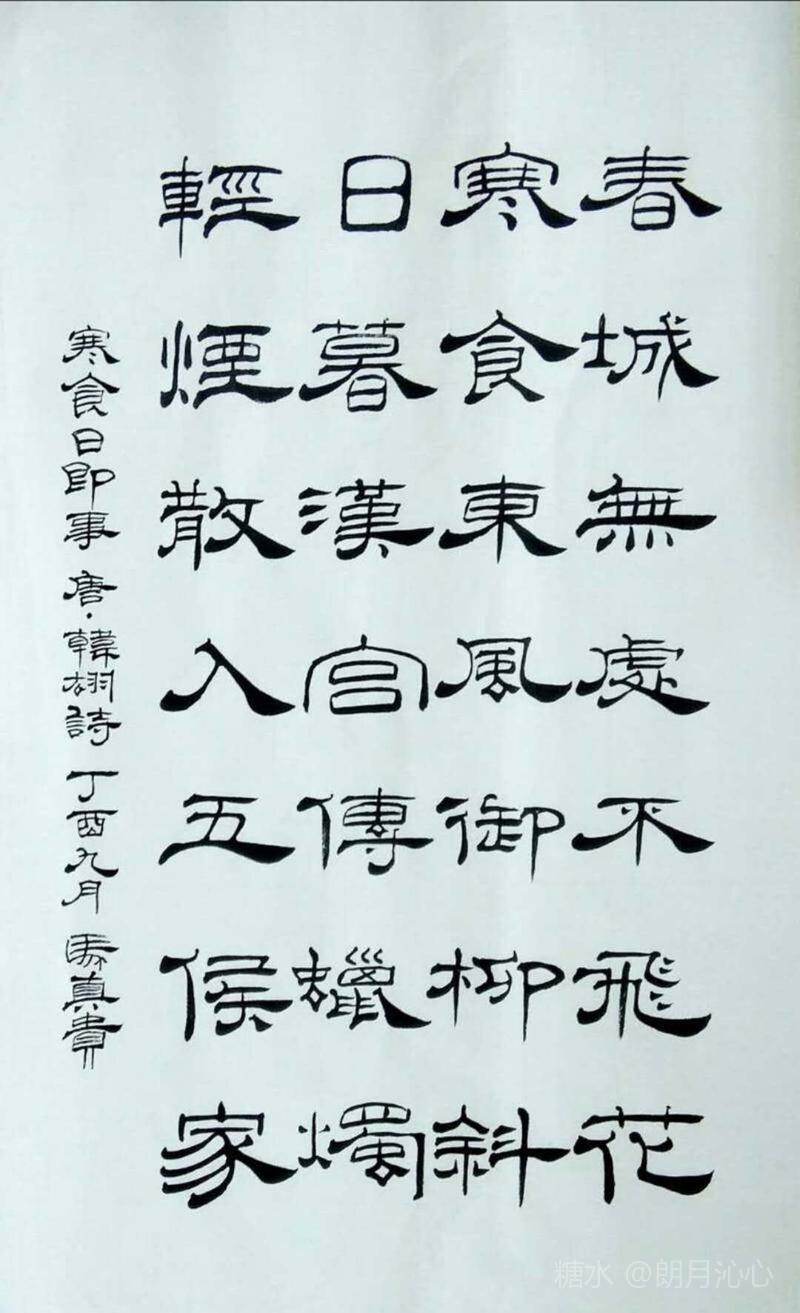 春城無處不飛花
寒食東風御柳斜
日暮漢宮傳蠟燭
輕煙散入五侯家
寒食日即事 唐·韓翃詩 丁酉九月 馬真貴
糖水 @朗月沁心